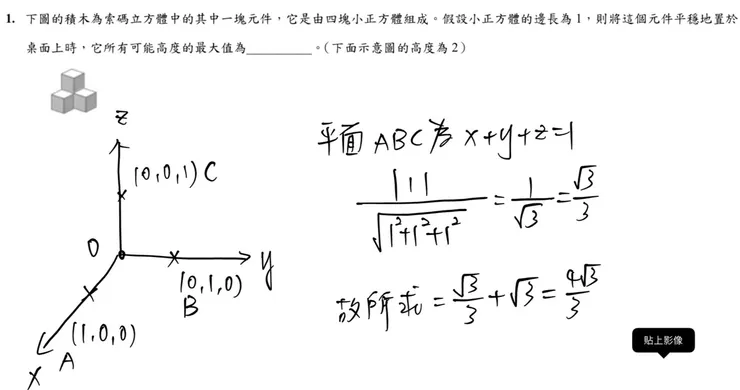 1. 下圖的積木為索碼立方體中的其中一塊元件，它是由四塊小正方體組成。假設小正方體的邊長為 1，則將這個元件平穩地置於
桌面上時，它所有可能高度的最大值為__________。（下面示意圖的高度為 2）
z
(0,0,1) C
O
y
(0,1,0)
B
(1,0,0)
x A
平面 ABC 為 x+y+z=1
|1|/√(1²+1²+1²) = 1/√3 = √3/3
故所求 = √3/3 + √3 = 4√3/3
貼上影像